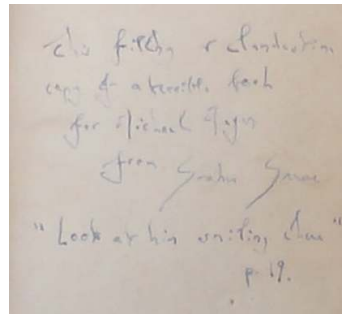 This filthy & clandestine
copy of a terrible book
for Michael
from Graham Greene
"Look at him smiling there"
p 19.